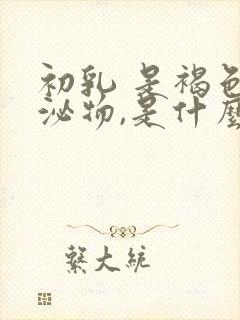 初乳 是褐色
泌物,是什麼
繫大統